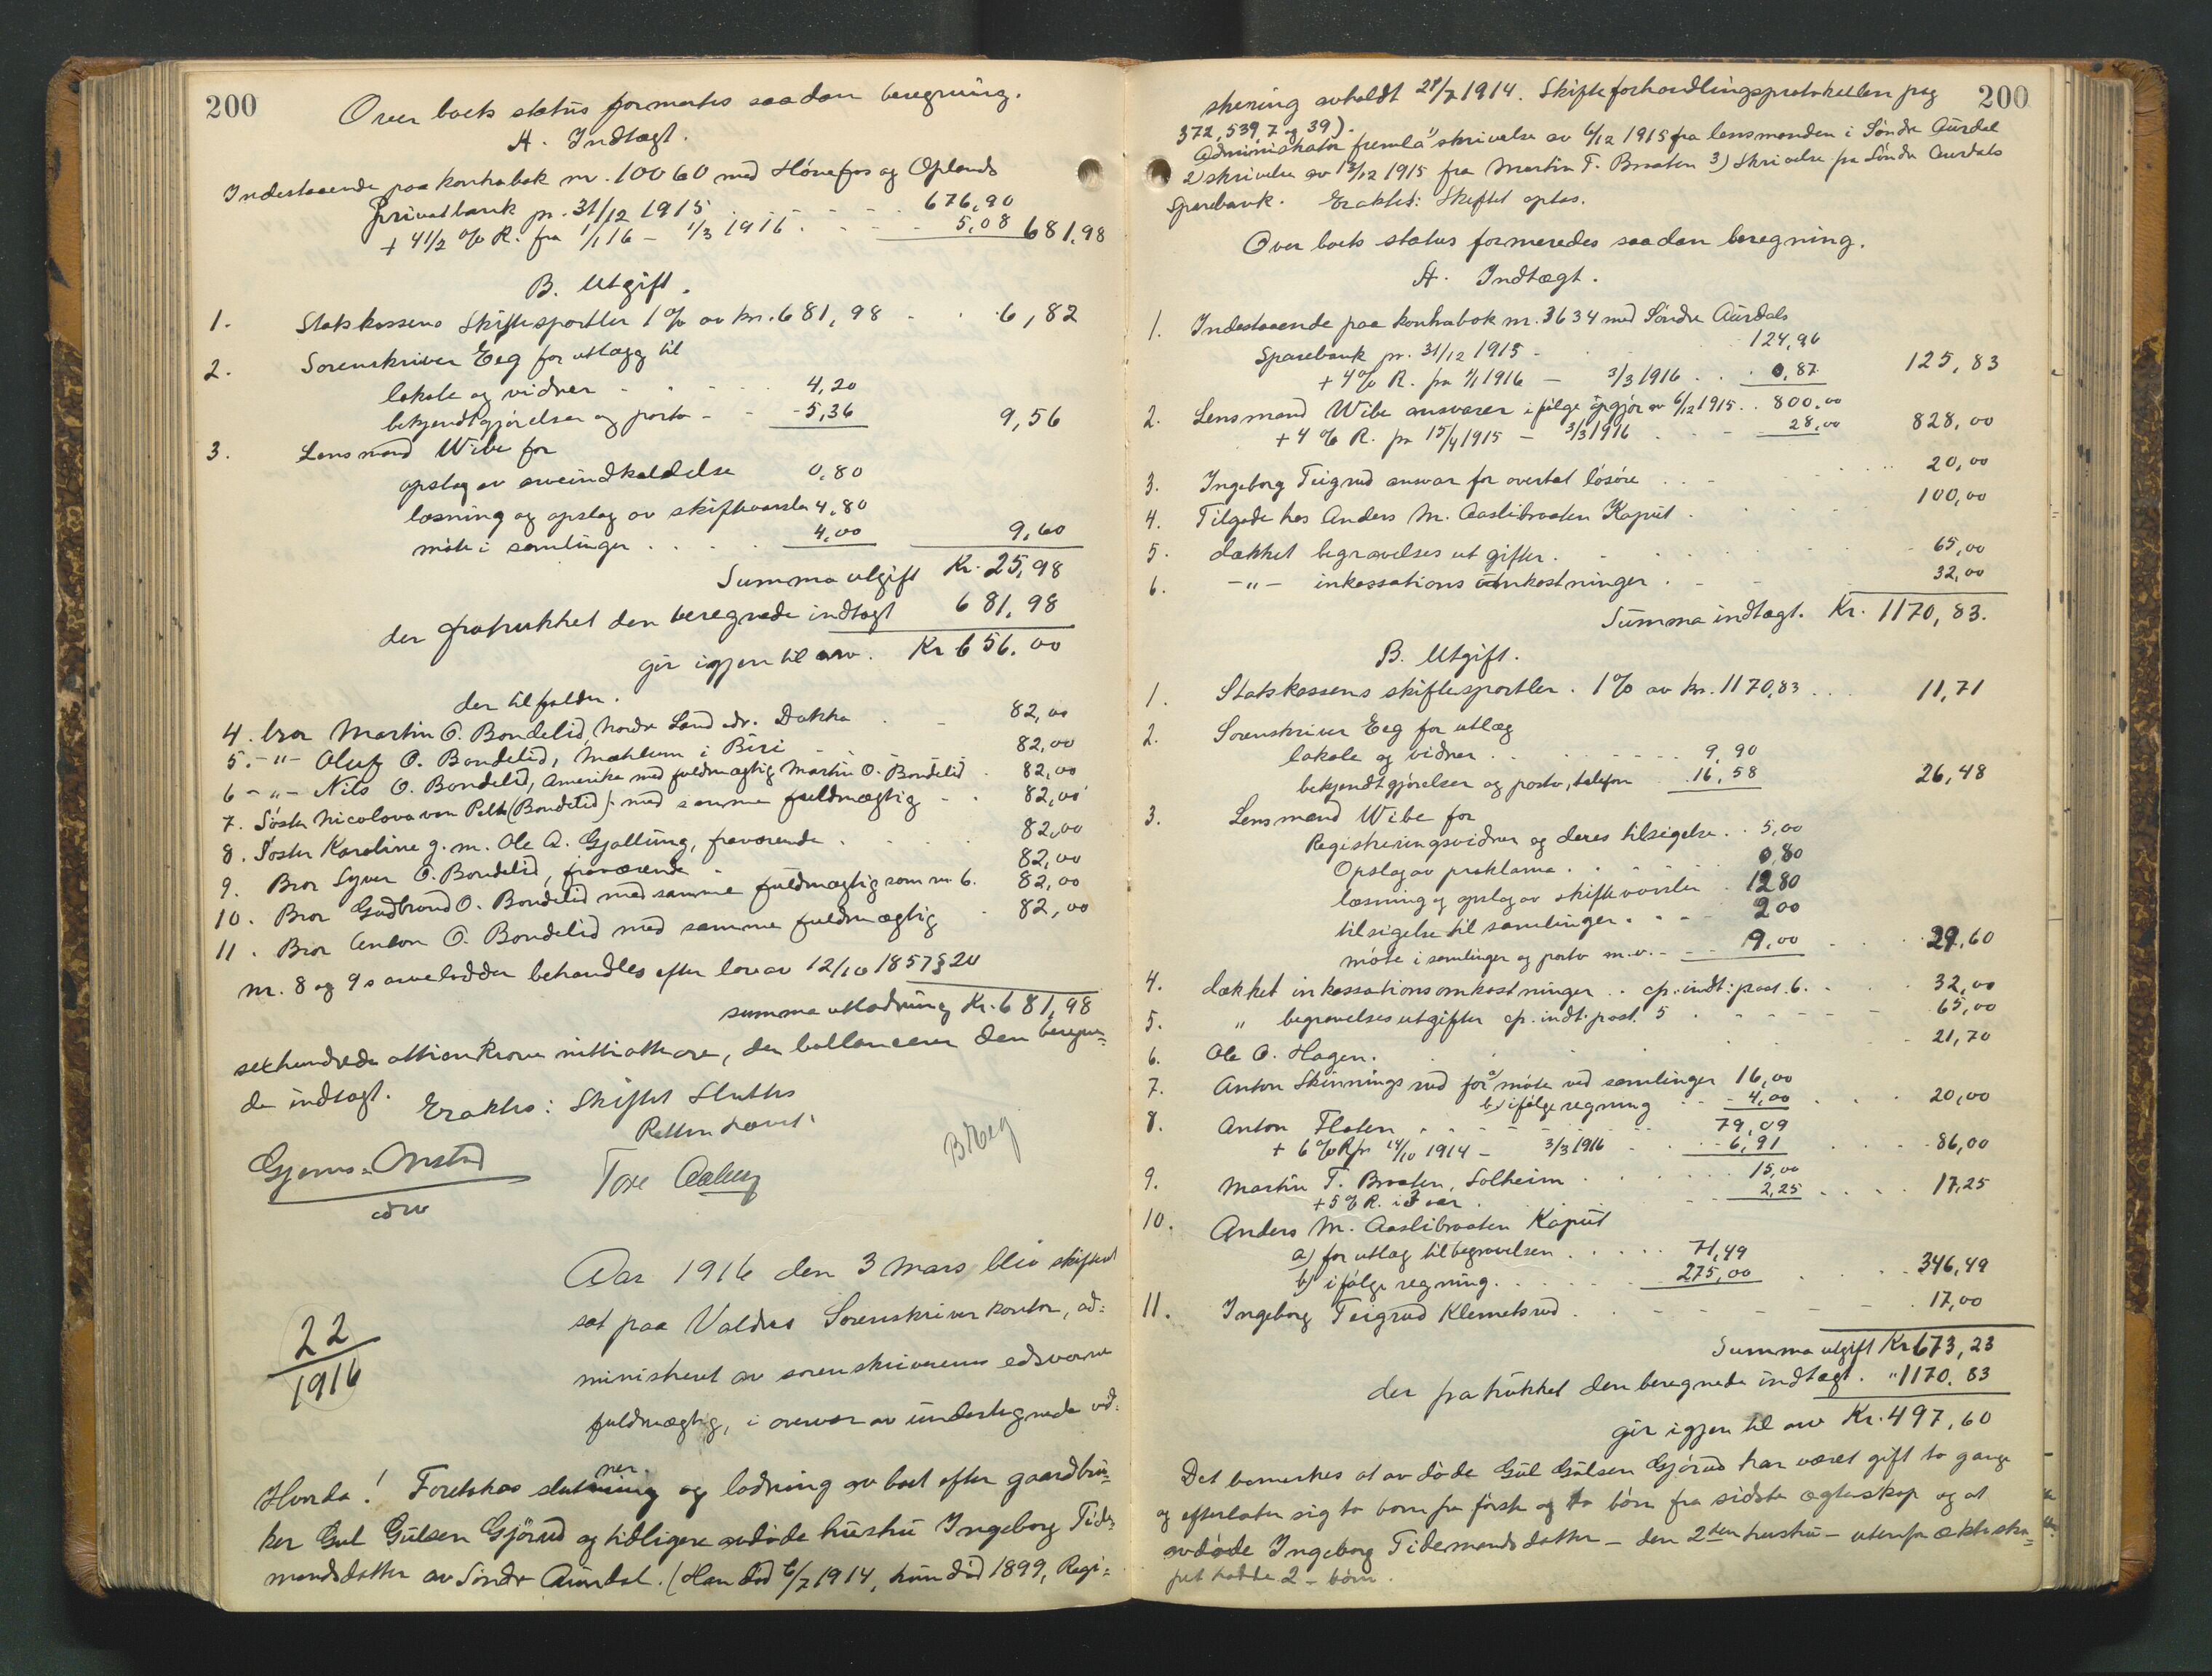 200
Over boets status formertes saadan beregning.
A. Indtægt.
Indestaaende paa kontrabok nr. 10060 med Hønefos og Oplands
Privatbank pr. 31/12 1915 676,90
+ 4 1/2 % R. fra 1/1 16 – 1/3 1916 5,08 681,98
B. Utgift.
1. Statskassens Skiftesportler 1 % av kr. 681,98 6,82
2. Sorenskriver Eeg for utlægg til
lokale og vidner 4,20
bekjendtgjørelser og porto 5,36 9,56
3. Lensmand Wibe for
opslag av arveindkaldelse 0,80
læsning og opslag av skiftevarsler 4,80
møte i samlinger 4,00 9,60
Summa utgift Kr. 25,98
der fratrukket den beregnede indtægt 681,98
gir igjen til arv. Kr 656.00
der tilfalder.
4. bror Martin O. Bondelid, Nordre Land adr. Dokka 82,00
5. -"- Oluf O. Bondelid, Mæhlum i Biri 82,00
6 -"- Nils O. Bondelid, Amerika med fuldmægtig Martin O. Bondelid 82,00
7. Søster Nicolova van Pelt (Bondelid) - med samme fuldmægtig 82,00
8. Søster Karoline g. m. Ole A. Gjallung, fraværende 82,00
9. Bror Syver O. Bondelid, fraværende 82,00
10. Bror Gudbrand O. Bondelid med samme fuldmægtig som nr 6. 82,00
11. Bror Anton O. Bondelid med samme fuldmægtig 82,00
Nr. 8 og 9s arvelodder behandles efter lov av 12/10 1857 § 20
summa utlodning Kr. 681,98
sekshundrede ottien Krone nittiotte øre, der ballancerer den bereg=
de indtægt. Eraktes: Skiftet Sluttes
Retten hævet.
Gjems-Onstad Tore Aaberg BEeg
adv
22/1916
Aar 1916 den 3 mars blev skifteret
sat paa Valdres Sorenskriver kontor, ad=
ministrert av sorenskriverens edsvorne
fuldmægtig, i overvær av undertegnede vid:
Hvorda! Foretokes slutninger og lodning av boet efter gaardbru=
ker Gul Gulsen Gjørud og tidligere avdøde hustru Ingeborg Tide=
mandsdatter av Søndre Aurdal. (Han død 6/7 1914, hun død 1899, Regi=
200
strering avholdt 21/7 1914. Skifteforhandlingsprotokollen pag
372, 539, 7 og 39).
Administrator fremla 1) skrivelse av 6/12 1915 fra lensmanden i Søndre Aurdal
2) skrivelse av 13/12 1915 fra Martin T. Braaten 3) Skrivelse fra Søndre Aurdals
Sparebank. Eraktes: Skiftet optas.
Over boets status formeredes saadan beregning.
A. Indtægt.
1. Indestaaende paa kontrabok nr. 3634 med Søndre Aurdals
Sparebank pr. 31/12 1915 124,96
+ 4% R. fra 1/1 1916 – 3/3 1916 0,87 125,83
2. Lensmand Wibe ansvarer ifølge opgjør av 6/12 1915 800,00
+ 4 % R. fra 15/4 1915 – 3/3 1916 28,00 828,00
3. Ingeborg Teigrud ansvar for overtat løsøre 20,00
4. Tilgode hos Anders M. Aaslibraaten Kaput 100,00
5. dækket begravelses utgifter 65,00
6. -"- inkassations omkostninger 32,00
Summa indtægt. Kr. 1170,83.
B. Utgift.
1. Statskassens skiftesportler. 1% av kr. 1170,83 11,71
2. Sorenskriver Eeg for utlæg
lokale og vidner 9,90
bekjendtgjørelser og porto, telefon 16,58 26,48
3. Lensmand Wibe for
Registreringsvidner og deres tilsigelse 5,00
Opslag av proklama 0,80
læsning og opslag av skiftevarsler 12 80
tilsigelse til samlinger 2 00
møte i samlinger og porto m.v. 9,00 29,60
4. dækket inkassationsomkostninger cfr. indt: post. 6. 32,00
5. " begravelsesutgifter cfr. indt. post. 5 65,00
6. Ole O. Hagen. 21,70
7. Anton Skinningsrud for a) møte ved samlinger 16,00
b) ifølge regning 4,00 20,00
8. Anton Fløten 79,09
+ 6 % R fra 14/10 1914 – 3/3 1916 6,91 86,00
9. Martin T. Braaten, Solheim 15,00
+ 5 % R. i 3 aar 2,25 17,25
10. Anders M. Aaslibraaten Kaput
a) for utlæg til begravelsen 71,49
b) ifølge regning 275,00 346,49
11. Ingeborg Teigrud Klemetsrud 17,00
Summa utgift Kr 673,23
der fratrukket den beregnede indtægt. " 1170.83
gir igjen til arv Kr. 497,60
Det bemerkes at av døde Gul Gulsen Gjørud har været gift to gange
og efterlater sig to barn fra første og to børn fra sidste ægteskap og at
avdøde Ingeborg Tidemandsdatter – den 2den hustru – utenfor ekteska=
pet hadde 2 – børn.